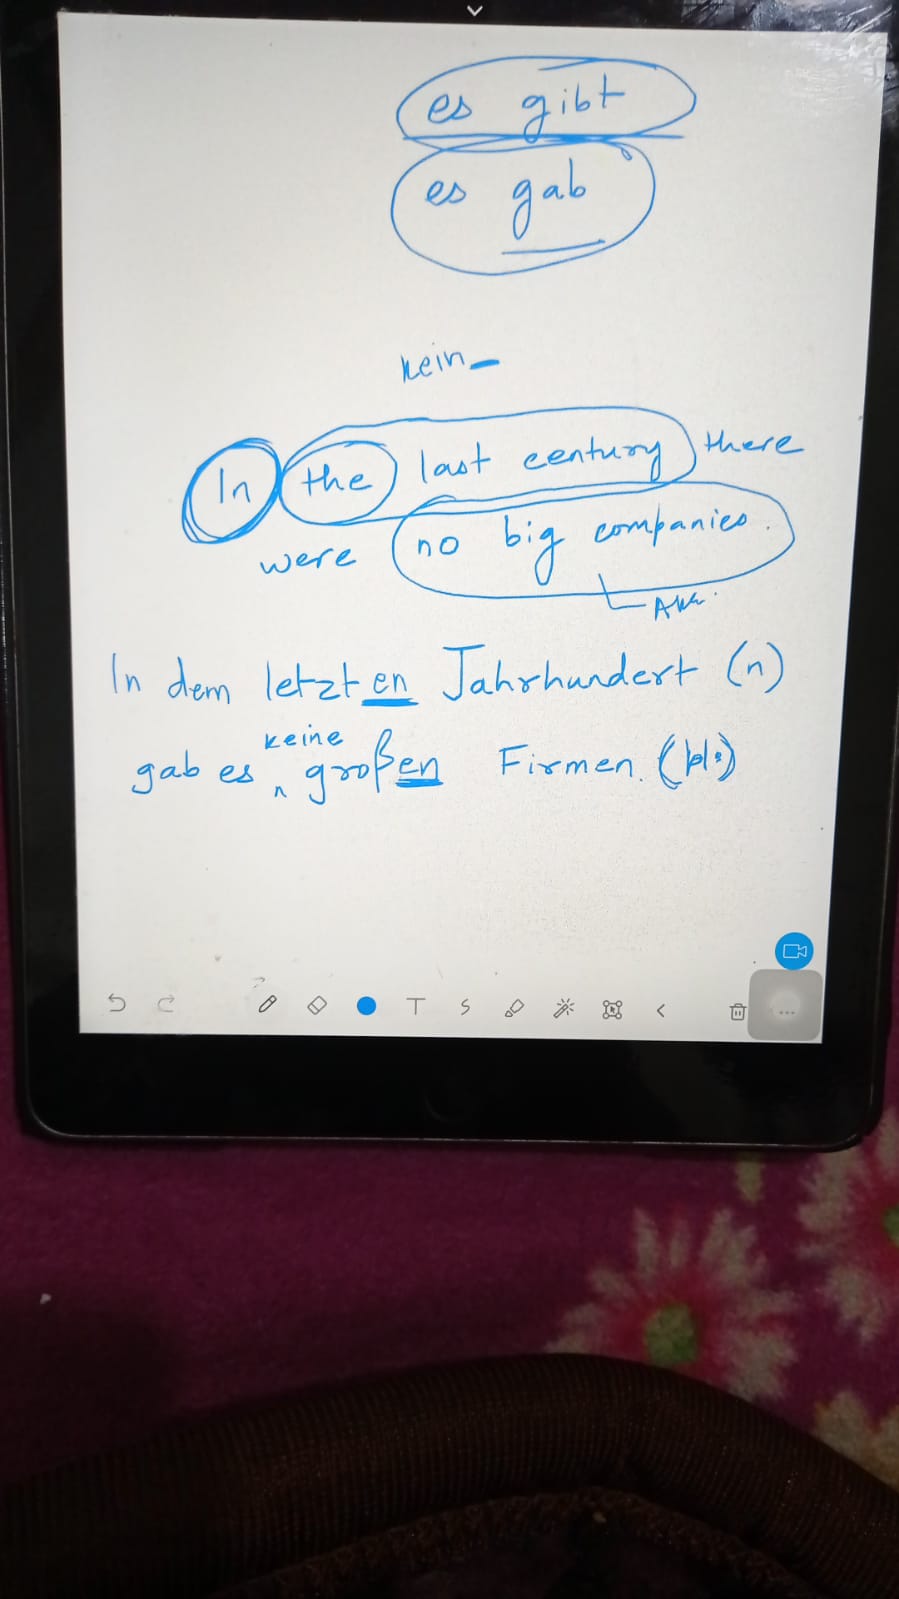 es gibt
es gab
kein_
In the last century there
were no big companies.
Akk.
In dem letzten Jahrhundert (n)
keine
gab es großen Firmen. (pl.)